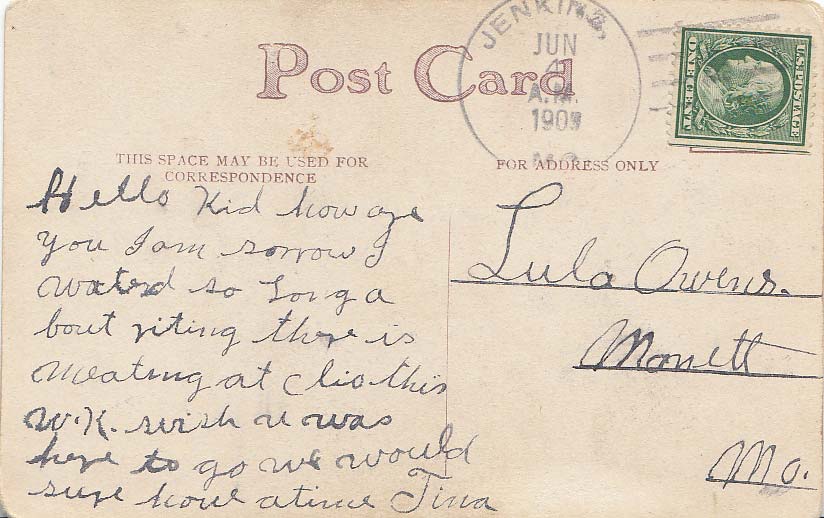 JENKINS,
JUN
4
A.M.
1909
MO.
Post Card
U.S. POSTAGE
ONE CENT
THIS SPACE MAY BE USED FOR
CORRESPONDENCE
FOR ADDRESS ONLY
Hello Kid how are
you I am sorrow I
wated so Long a
bout riting there is
Meating at Clio this
W.K. wish u was
here to go we would
sure have atime Tina
Lula Owens.
Monett
Mo.